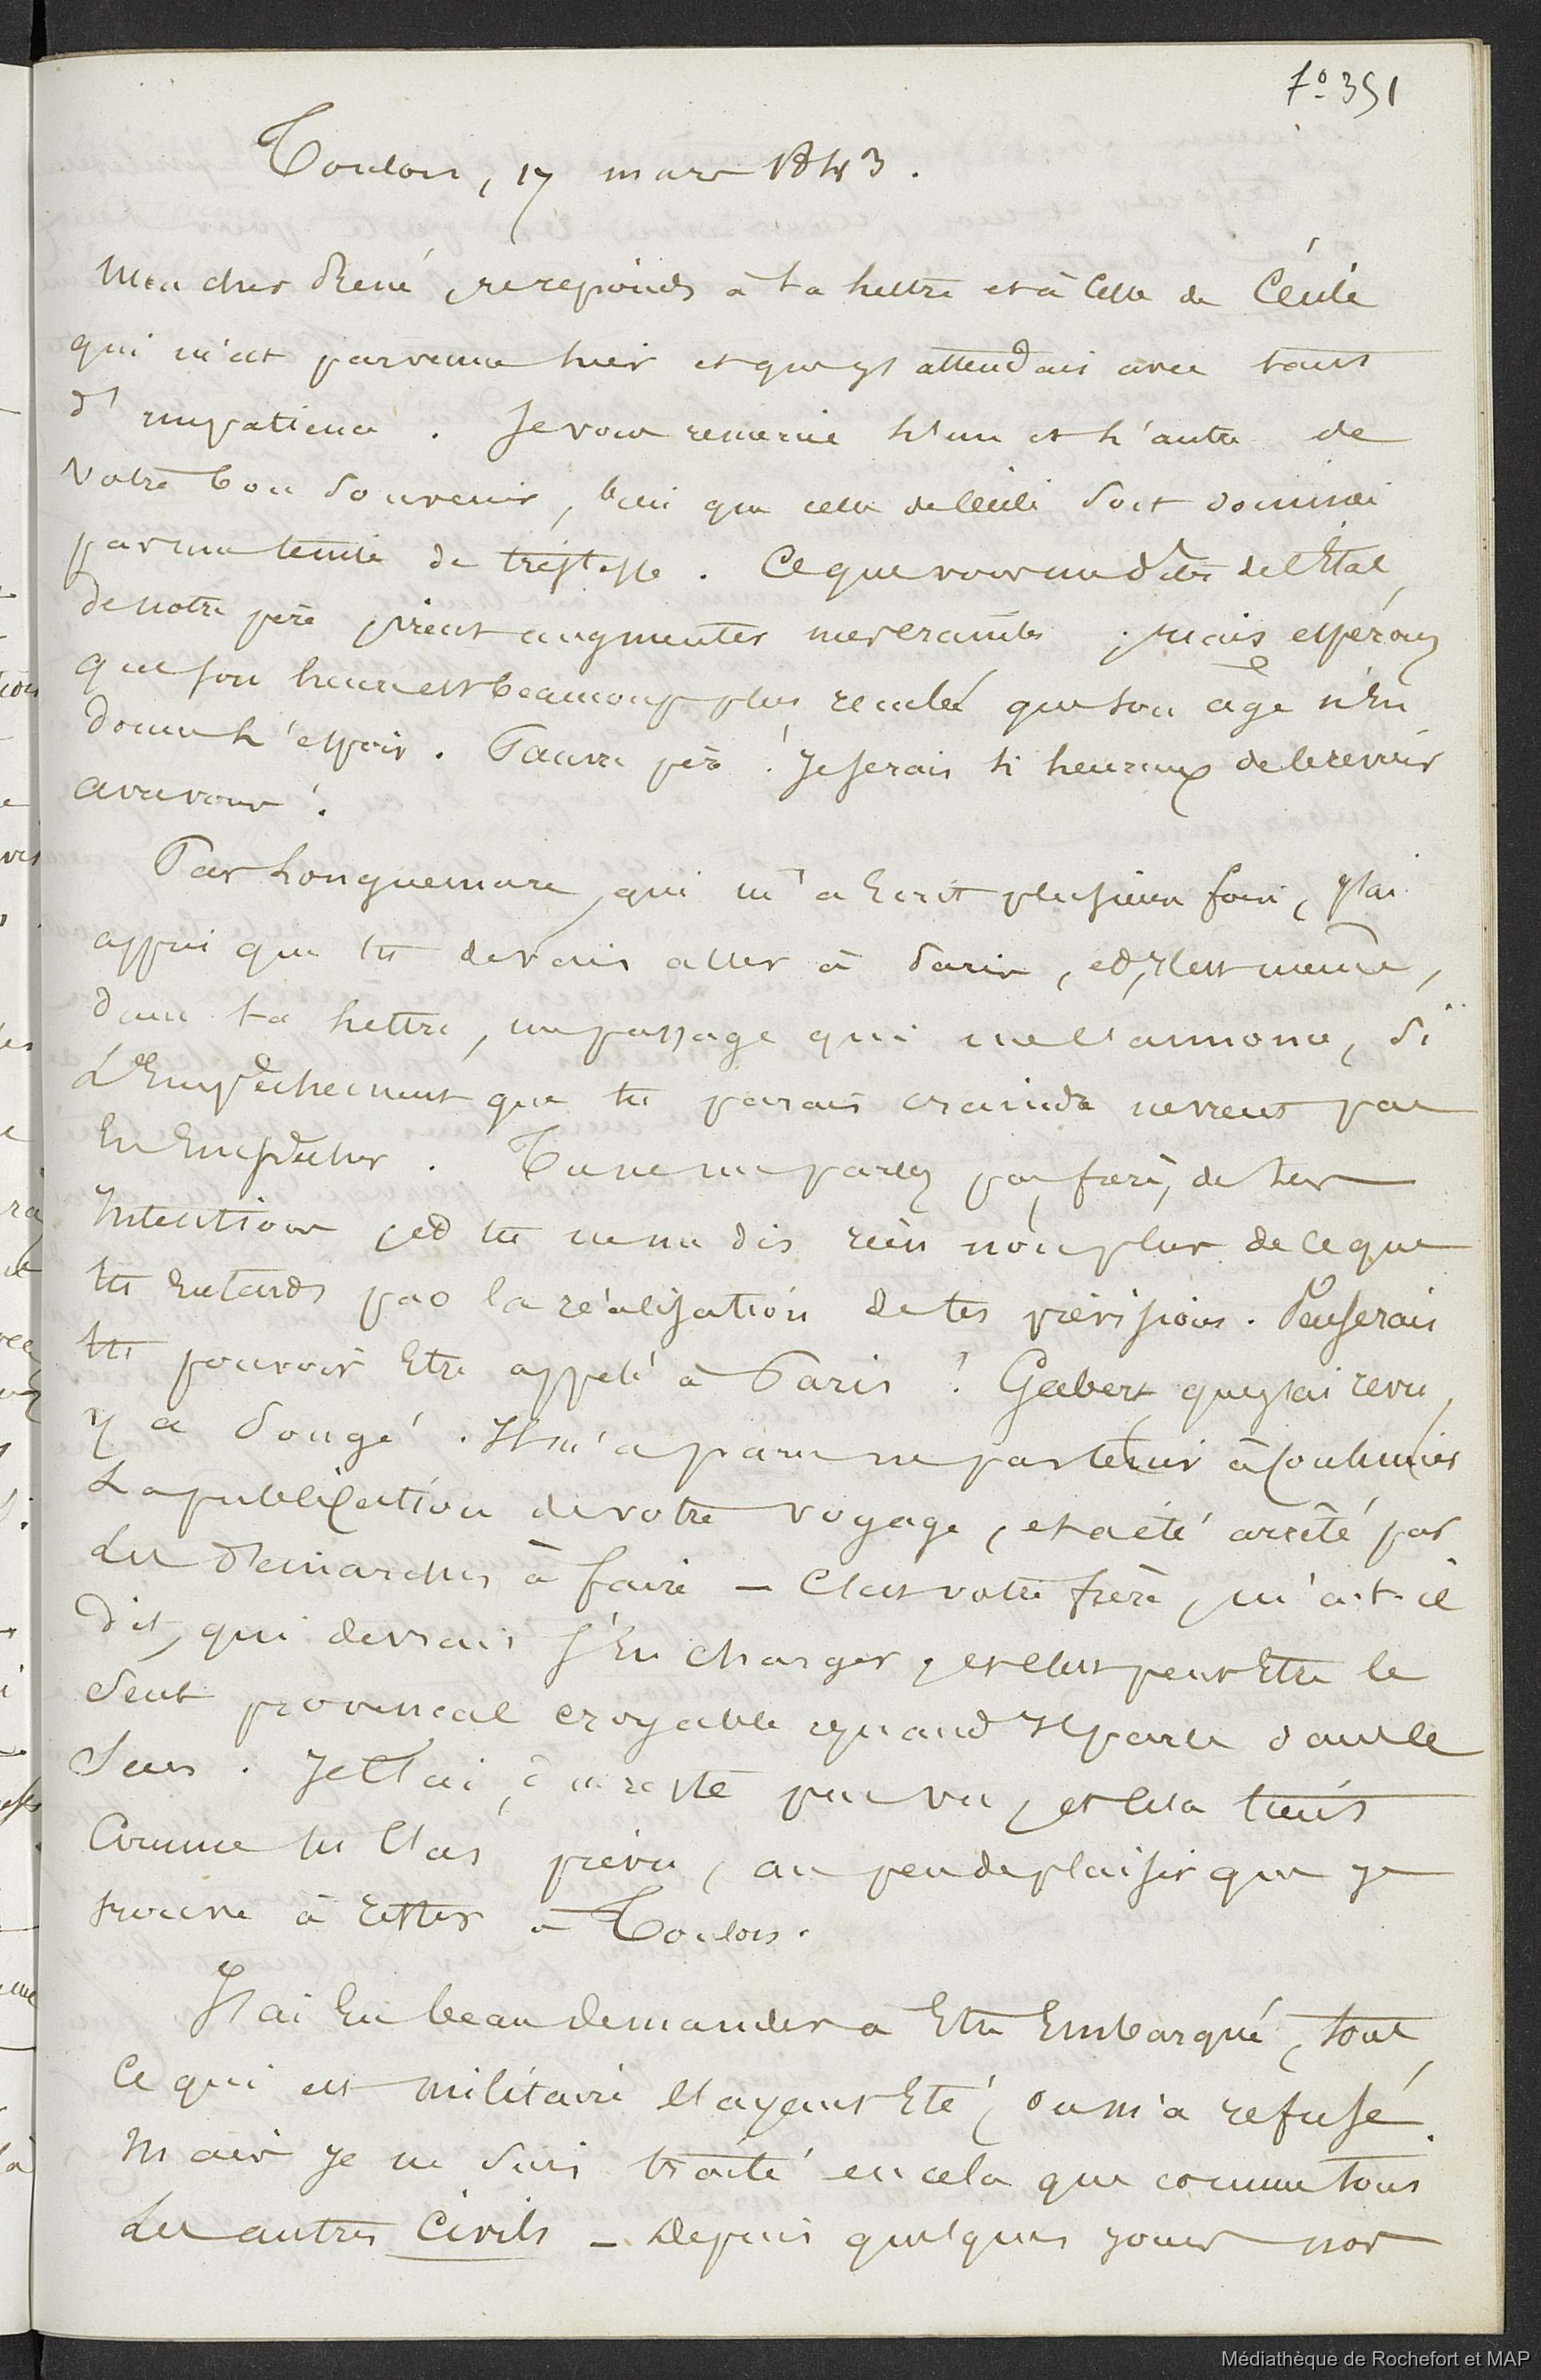 fo 351
Toulon, 17 mars 1843.
Mon cher René, je reponds à ta lettre et à celle de Cécile
qui m'est parvenue hier et que j'attendais avec tant
d'impatience. Je vous remercie l'un et l'autre de
votre bon souvenir, bien que celle de Cécile soit dominée
par une teinte de tristesse. Ce que vous me dites de l'état
de notre père vient augmenter mes craintes, mais espérons
que son heure est beaucoup plus reculée que son âge n'en
donne l'espoir. Pauvre père ! Je serais si heureux de le revoir
avec vous !
Par Longuemare, qui m'a écrit plusieurs fois, j'ai
appris que tu devais aller à Paris, et, il est même,
dans ta lettre, un passage qui me l'annonce, si
l'empêchement que tu parais craindre ne vient pas
en empêcher. Tu ne me parles pas, frère, de tes
intentions, et tu ne me dis rien non plus de ce que
tu entends par la réalisation de tes prévisions. Penserais
tu pouvoir être appelé à Paris ? Gabert, que j'ai revu,
y a songé. Il m'a paru ne pas tenir à
la publication de votre voyage, et a été arrêté par
les démarches à faire — C'est votre frère, m'a-t-il
dit, qui devrait s'en charger, et c'est peut être le
seul provencal croyable quand il parle dans le
sens. Je l'ai, du reste peu vu, et cela tient
comme tu l'as prévu, au peu de plaisir que je
trouve à rester à Toulon.
J'ai eu beau demander a être embarqué, tout
ce qui est militaire l'ayant été, on m'a refusé.
Mais je ne suis traité en cela que comme tous
les autres civils — Depuis quelques jours nos
Médiathèque de Rochefort et MAP